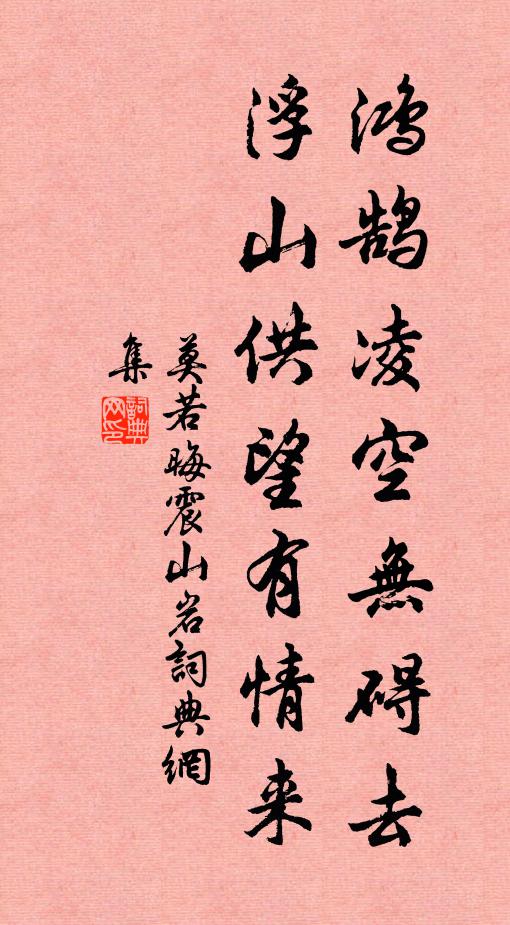 鸿鹄凌空無碍去
浮山供望有情来
莫若晦震山岩詞典網
集
詞典
网印